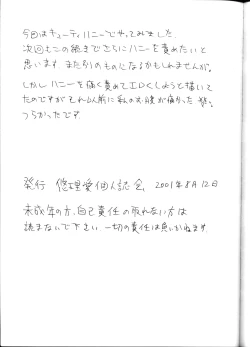 今回はキューティハニーでやってみました。
次回もこの続きでさらにハニーを責めたいと
思います。また別のものになるかもしれませんが。
しかしハニーを痛く責めてエロくしようと描いて
たのですがそれ以前に私の方が痛かった
つらかったです
発行 修理愛好人認会 2001年8月12日
未成年の方、自己責任の取れない方は
読まないで下さい。一切の責任は負いかねます